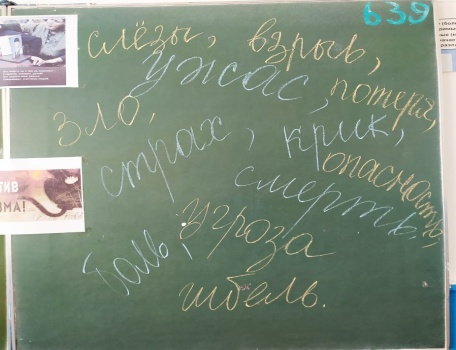 639
слёзы, взрыв,
ужас,
потеря,
зло,
страх,
крик,
опасность,
смерть,
угроза
боль,
гибель.
ТИВ
ЗМА!